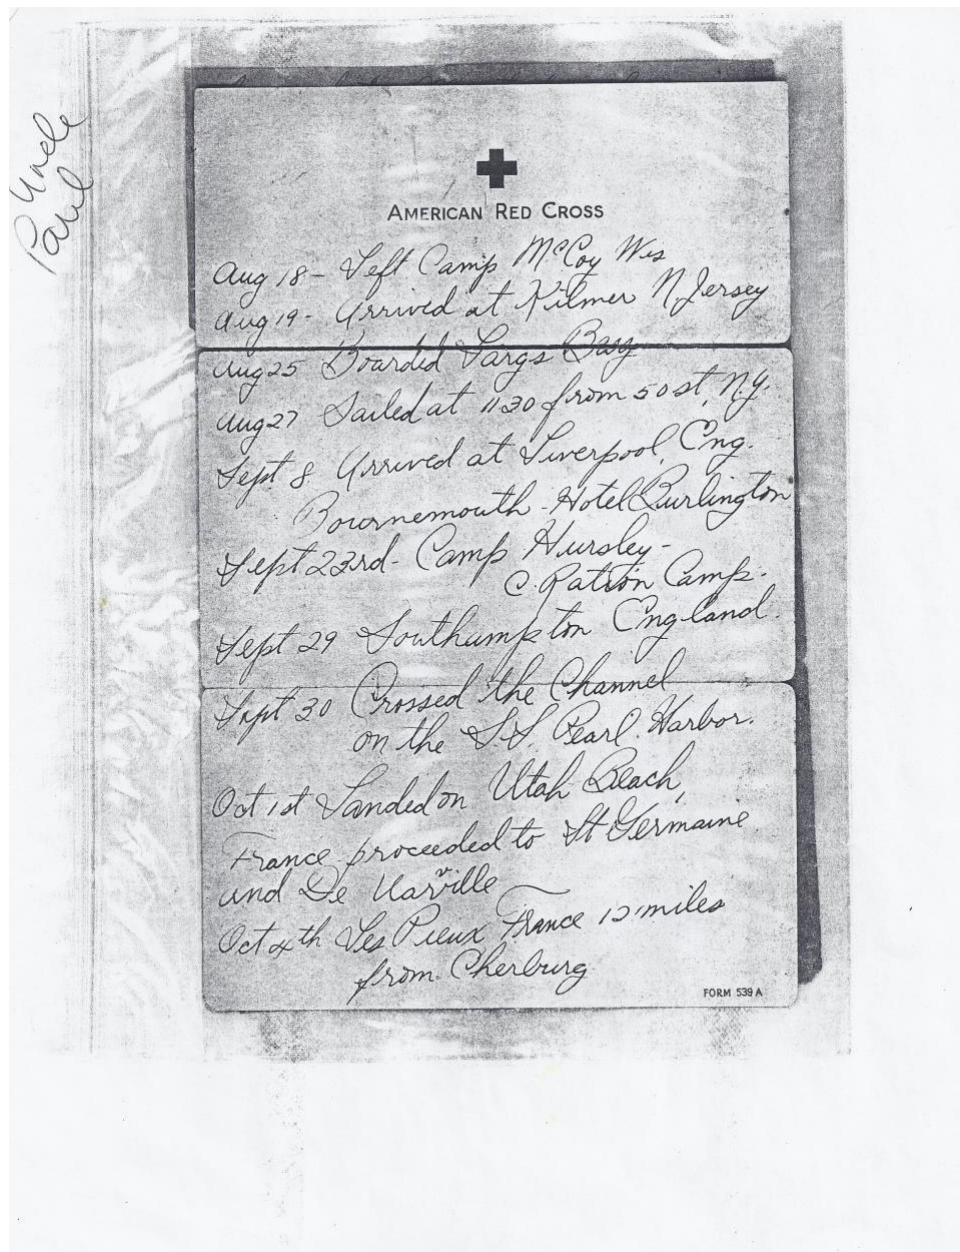 Uncle
Paul
AMERICAN RED CROSS
Aug 18 - Left Camp McCoy Wis
Aug 19 - Arrived at Kilmer N Jersey
Aug 25 Boarded Largs Bay
Aug 27 Sailed at 1130 from 50 st, N.Y.
Sept 8 Arrived at Liverpool, Eng.
Bournemouth - Hotel Burlington
Sept 23rd - Camp Hursley -
C. Ration Camp.
Sept 29 Southampton England.
Sept 30 Crossed the Channel
on the S.S. Pearl Harbor.
Oct 1st Landed on Utah Beach,
France proceeded to St Germaine
and De Varville
Oct 4th Les Pieux France 12 miles
from Cherburg
FORM 539 A